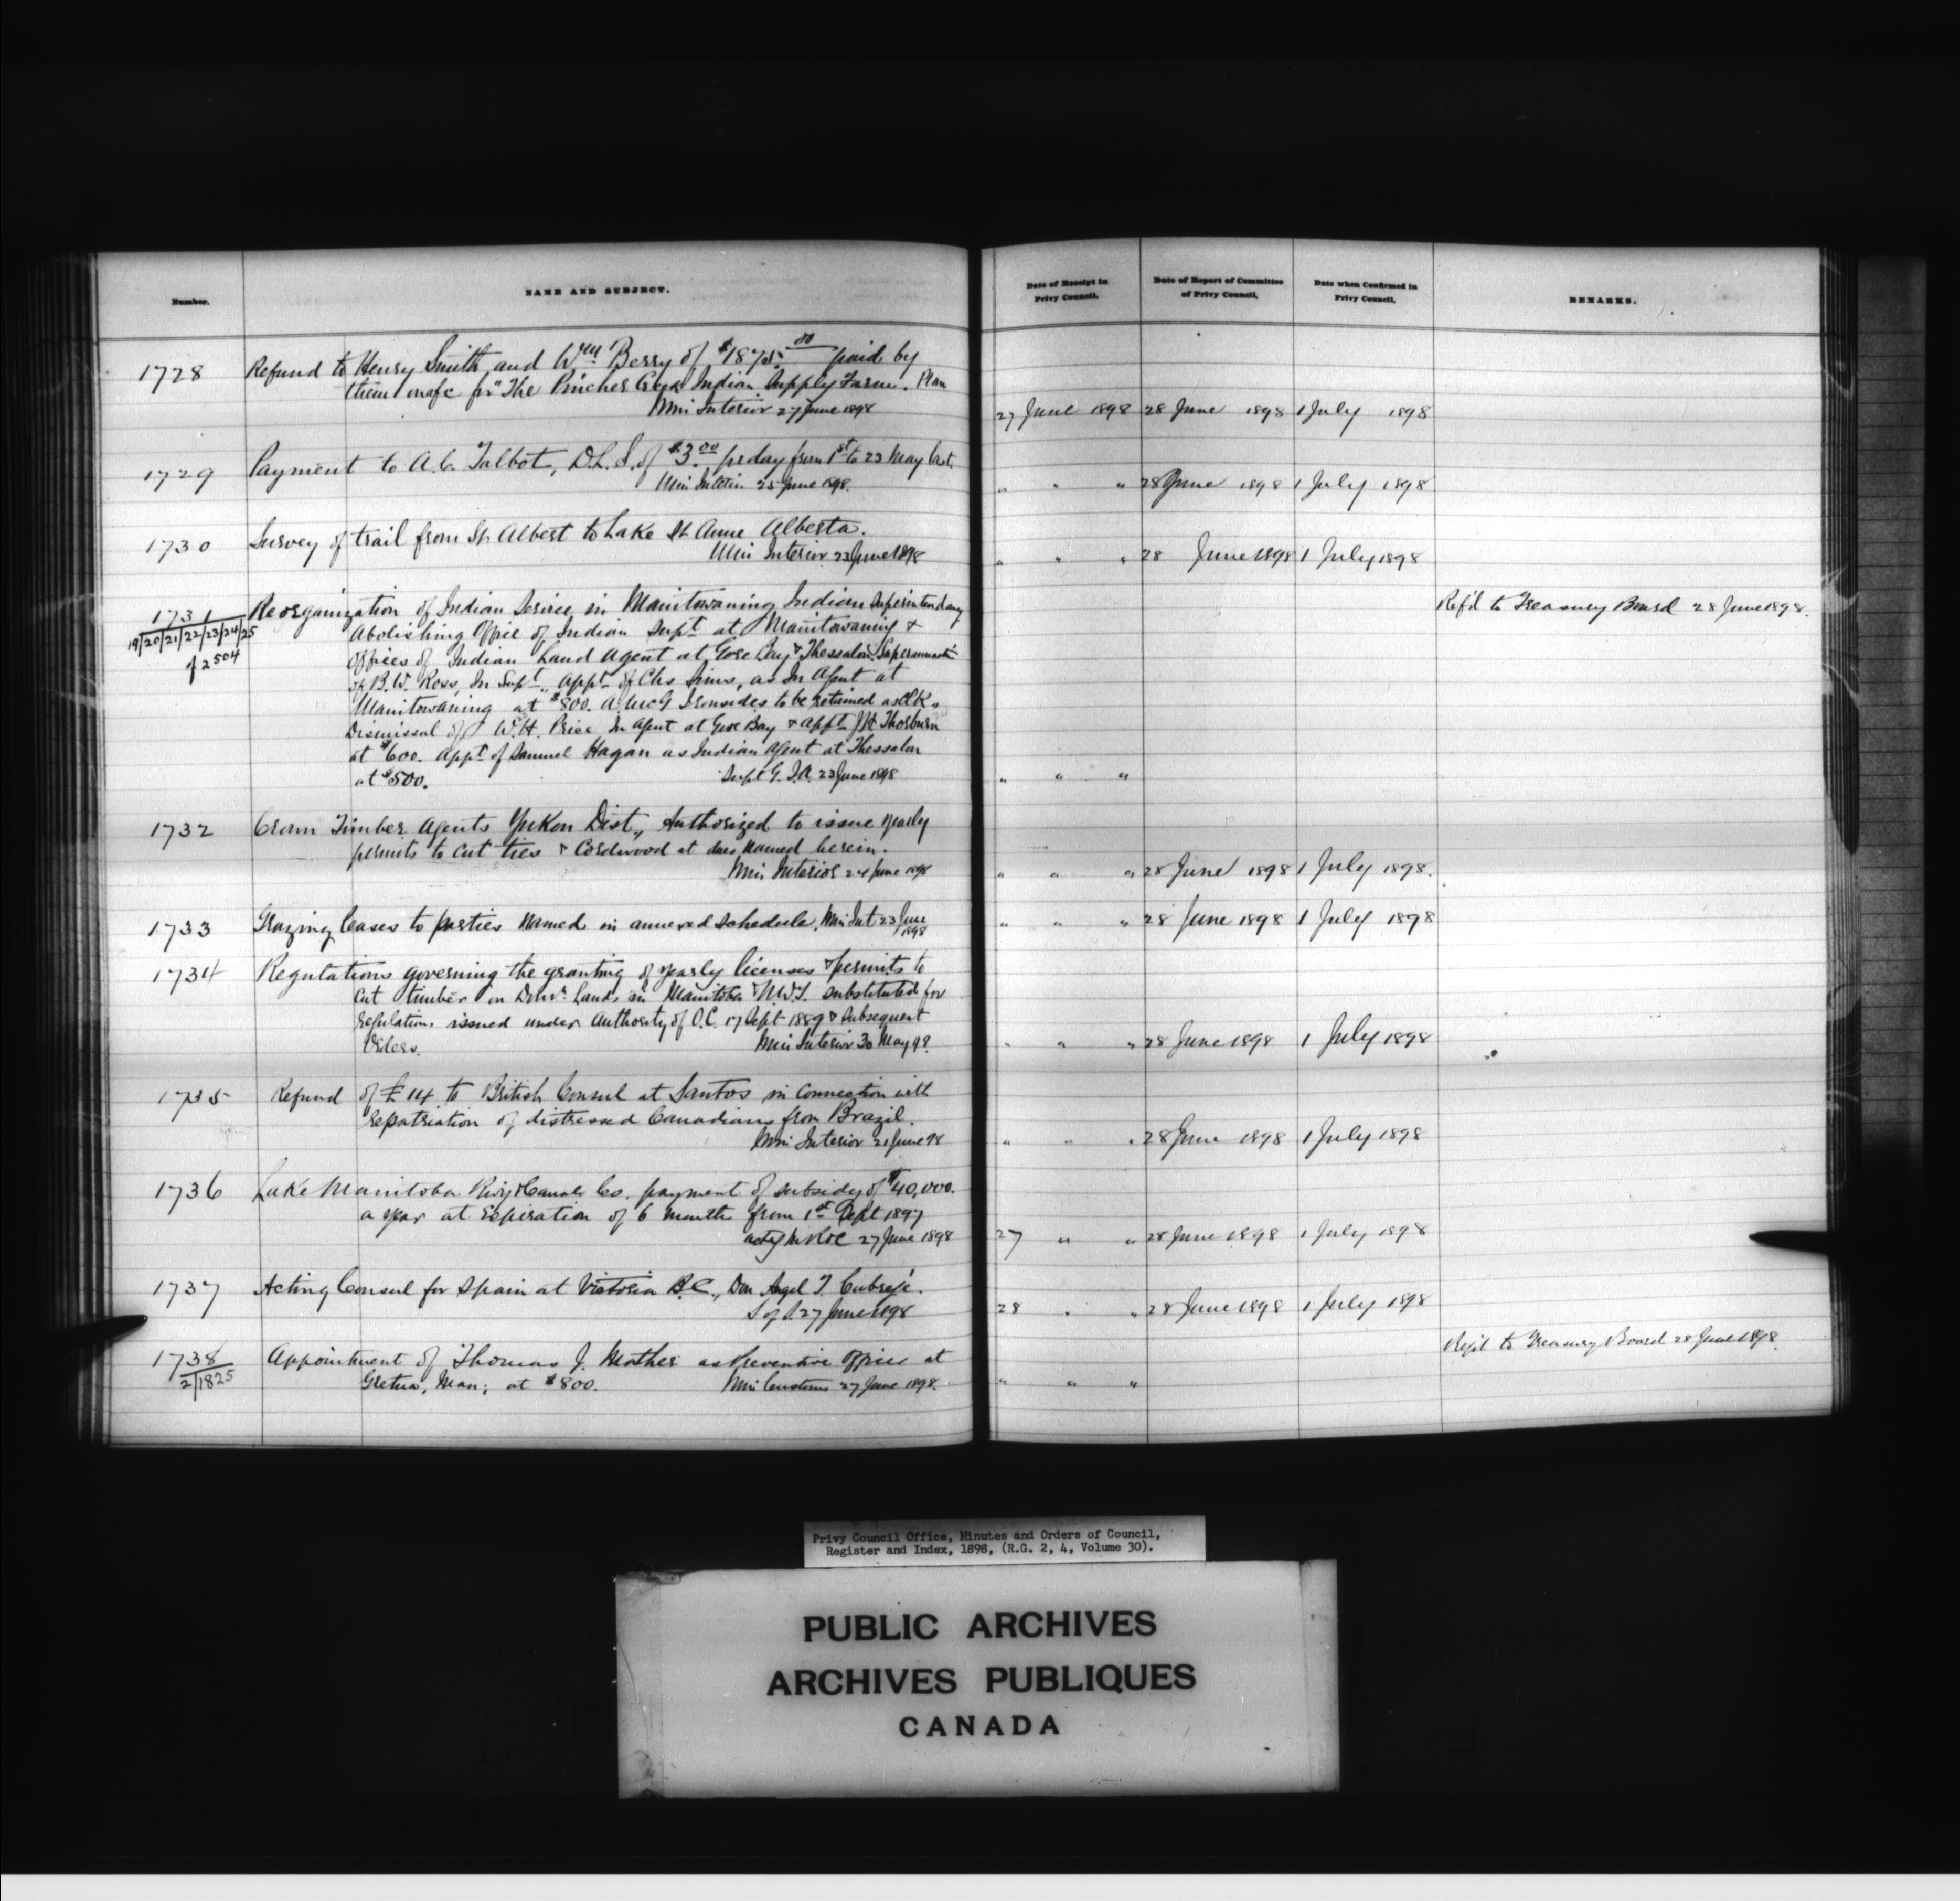 Number.
NAME AND SUBJECT.
Date of Receipt in
Privy Council.
Date of Report of Committee
of Privy Council,
Date when Confirmed in
Privy Council,
REMARKS.
1728
Refund to Henry Smith and Wm Berry of $1875.00 paid by
them on a/c for "The Pincher Creek Indian Supply Farm. Plan
Min Interior 27 June 1898
27 June 1898
28 June 1898
1 July 1898
1729
Payment to A.C. Talbot, D.L.S. of $3.00 pr day from 1st to 23 May last.
Min Interior 25 June 1898.
" " "
28 June 1898
1 July 1898
1730
Survey of trail from St Albert to Lake St Anne Alberta.
Min Interior 23 June 1898
" " "
28 June 1898
1 July 1898
1731
19/20/21/22/23/24/25
of 2504
Reorganization of Indian Service in Manitowaning Indian Superintendancy
Abolishing Office of Indian Supt at Manitowaning &
Offices of Indian Land Agent at Gore Bay & Thessalon. Superannuatn
of B.W. Ross, In Supt, Appt of Chs Sims, as In Agent at
Manitowaning at $800. A McG Ironsides to be retained as Clk,
Dismissal of W.H. Price In Agent at Gore Bay & Appt J H Thorburn
at $600. Appt of Samuel Hagan as Indian Agent at Thessalon
at $500.
Supt G. I.A. 23 June 1898
" " "
Ref'd to Treasury Board 28 June 1898.
1732
Crown Timber Agents Yukon Dist., Authorized to issue yearly
permits to cut ties & Cordwood at dues named herein.
Min Interior 24 June 1898
" " "
28 June 1898
1 July 1898.
1733
Grazing leases to parties named in annexed schedule. Min Int 23 June
1898
" " "
28 June 1898
1 July 1898
1734
Regulations governing the granting of yearly licenses & permits to
cut timber on Domn Lands in Manitoba & N.W.T. substituted for
regulations issued under Authority of O.C. 17 Sept 1889 & subsequent
Orders.
Min Interior 30 May 98.
" " "
28 June 1898
1 July 1898
1735
Refund of £14 to British Consul at Santos in connection with
repatriation of distressed Canadians from Brazil.
Min Interior 21 June 98
" " "
28 June 1898
1 July 1898
1736
Lake Manitoba Rwy & Canal Co. payment of subsidy of $40,000.
a year at expiration of 6 months from 1st Sept 1897
Actg M R & C 27 June 1898
27 " "
28 June 1898
1 July 1898
1737
Acting Consul for Spain at Victoria B.C., Don Angel T. Cubrejé.
S of S. 27 June 1898
28 " "
28 June 1898
1 July 1898
1738
2/1825
Appointment of Thomas J. Mather as Preventive Officer at
Gretna, Man; at $800.
Min Customs 27 June 1898.
" " "
Ref'd to Treasury Board 28 June 1898.
Privy Council Office, Minutes and Orders of Council,
Register and Index, 1898, (R.G. 2, 4, Volume 30).
PUBLIC ARCHIVES
ARCHIVES PUBLIQUES
CANADA